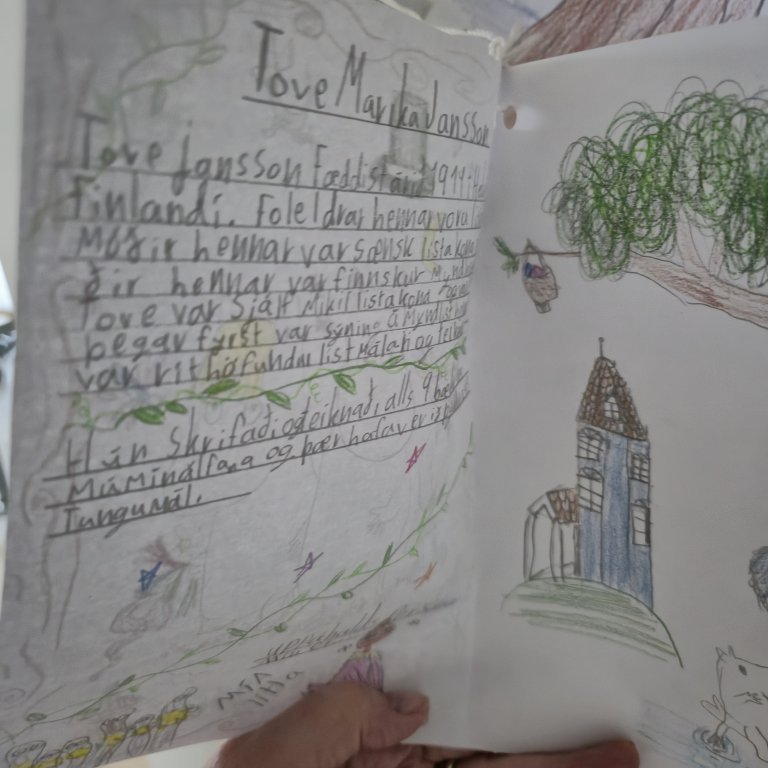 Tove Marika Jansson
Tove Jansson Fæddist árið 1911 Hel
Finlandi. Foleldrar hennar voru
Móðir hennar var sænsk listakona
ðir hennar var finnskur
Tove var Sjálf Mikil listakona
þegar fyrst var sýning á
var rithöfundur listmálari og
Hún skrifaði og teiknaði alls 9
Múmínálfana og þær hafa verið
Tungumál.
Mía
litla